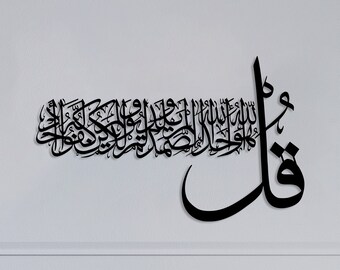 قُلْ هُوَ اللَّهُ أَحَدٌ اللَّهُ الصَّمَدُ لَمْ يَلِدْ وَلَمْ يُولَدْ وَلَمْ يَكُن لَّهُ كُفُوًا أَحَدٌ